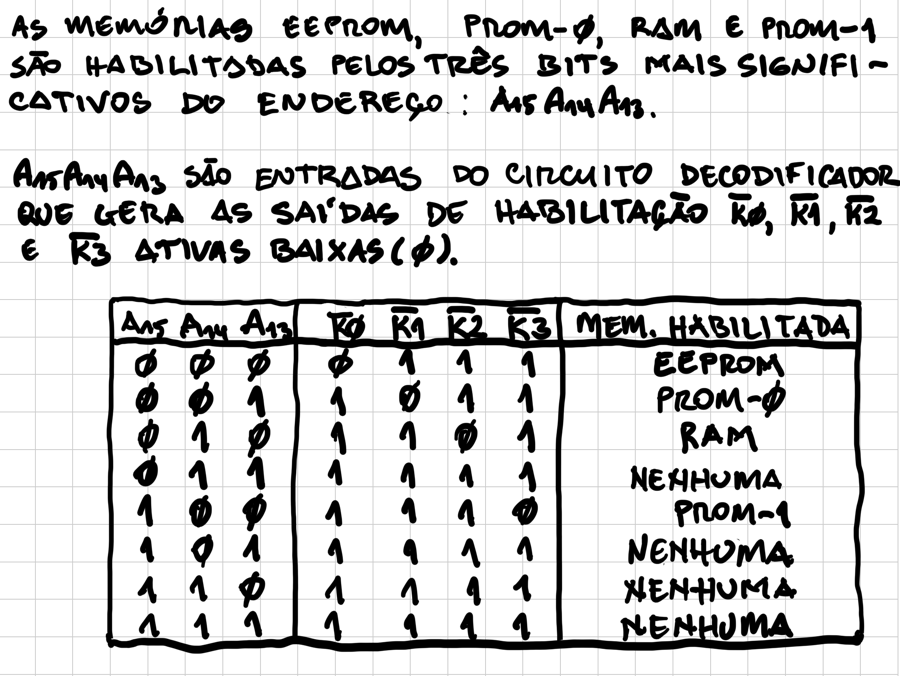 AS MEMÓRIAS EEPROM, PROM-Ø, RAM E PROM-1
SÃO HABILITADAS PELOS TRÊS BITS MAIS SIGNIFI-
CATIVOS DO ENDEREÇO: A15 A14 A13.
A15 A14 A13 SÃO ENTRADAS DO CIRCUITO DECODIFICADOR
QUE GERA AS SAÍDAS DE HABILITAÇÃO K̅Ø, K̅1, K̅2
E K̅3 ATIVAS BAIXAS (Ø).
A15 A14 A13 K̅Ø K̅1 K̅2 K̅3 MEM. HABILITADA
Ø Ø Ø Ø 1 1 1 EEPROM
Ø Ø 1 1 Ø 1 1 PROM-Ø
Ø 1 Ø 1 1 Ø 1 RAM
Ø 1 1 1 1 1 1 NENHUMA
1 Ø Ø 1 1 1 Ø PROM-1
1 Ø 1 1 1 1 1 NENHUMA
1 1 Ø 1 1 1 1 NENHUMA
1 1 1 1 1 1 1 NENHUMA